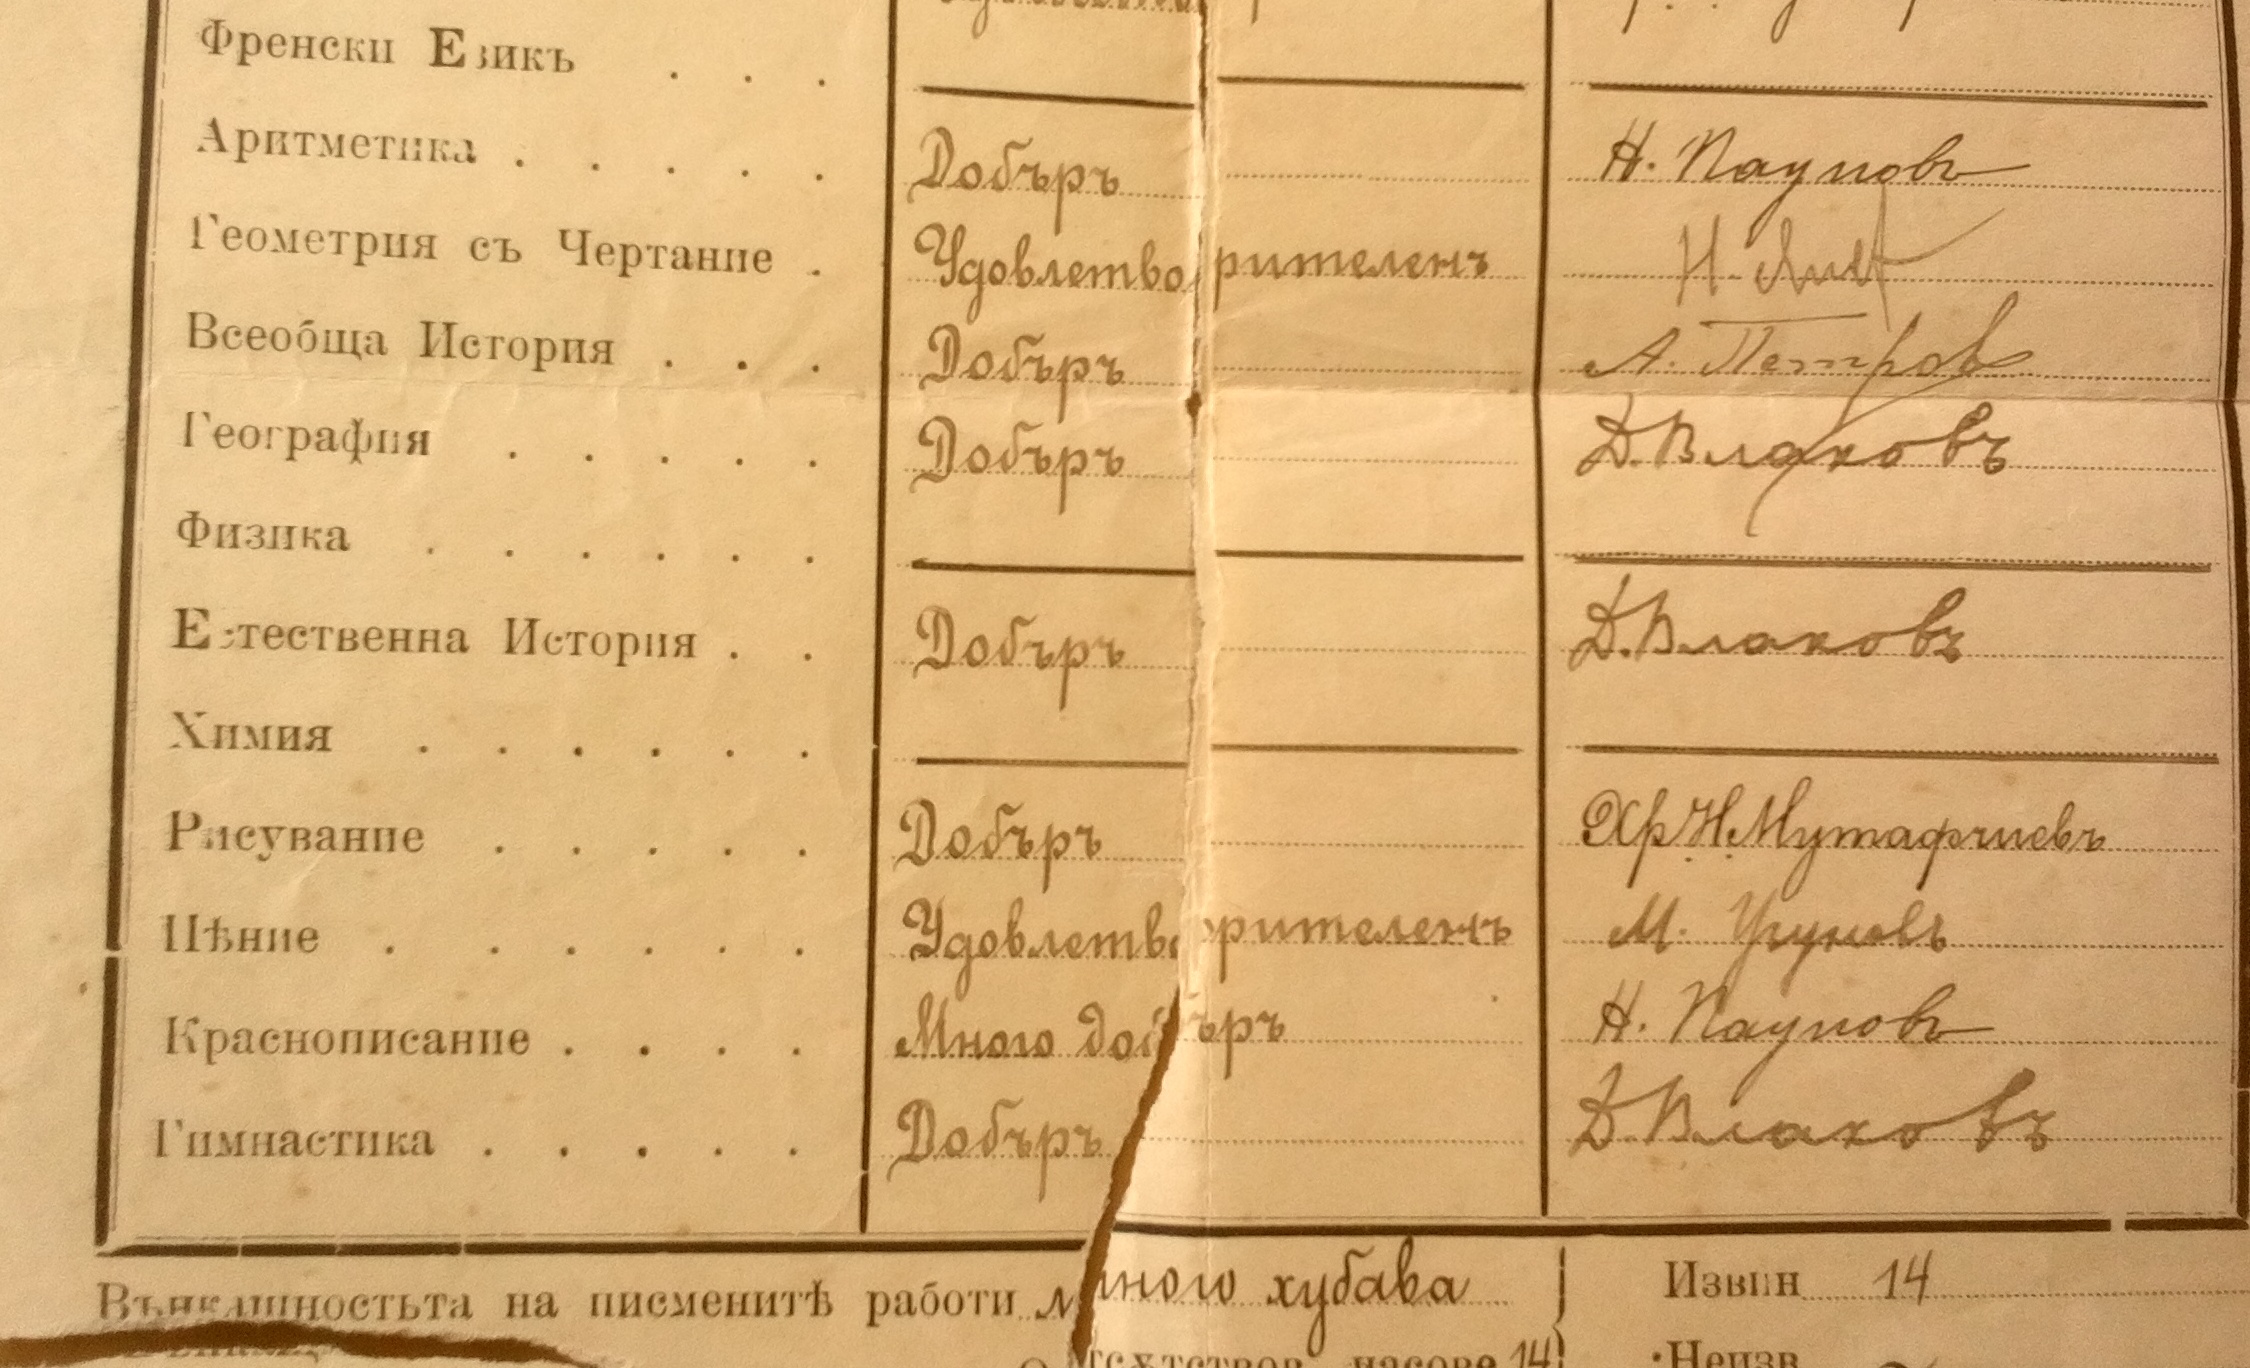 Френски Езикъ . . .
Аритметика . . . . . Добъръ Н. Пауновъ
Геометрия съ Чертание . Удовлетворителенъ Н.
Всеобща История . . . Добъръ А. Петровъ
География . . . . . Добъръ Д. Влаховъ
Физика . . . . . .
Естественна История . . Добъръ Д. Влаховъ
Химия . . . . . .
Рисувание . . . . . Добъръ Хр. Н. Мутафчиевъ
Пѣние . . . . . . Удовлетворителенъ М.
Краснописание . . . . Много добъръ Н. Пауновъ
Гимнастика . . . . . Добъръ Д. Влаховъ
Вънкашностьта на писменитѣ работи много хубава } Извин 14
часове 14 Неизв